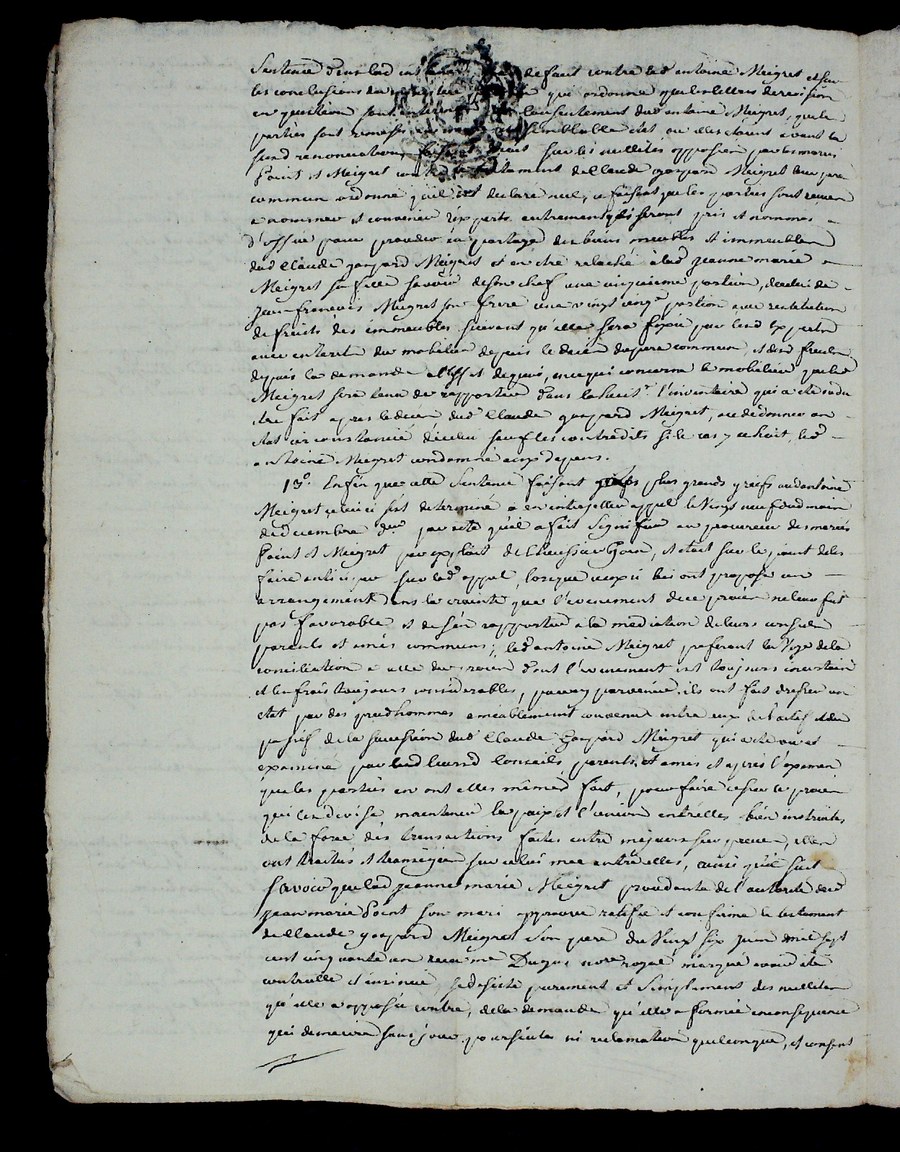 Sentence dans lad instance de faut contre led antoine Meigret et sur
les conclusions du qui ordonne que les lettres de rescision
en question sont du consentement dud antoine Meigret, que les
parties sont remises semblable etat ou elles étoient avant la
susd renonciation, faisant droit sur les nullités opposées par les mariés
Point et Meigret contre le testament de Claude gaspard Meigret leur pere
commun ordonne qu'il est declaré nul, ce faisant que les parties sont
a nommer et convenir d'experts autrement qu'ils seront pris et nommés
d'office pour proceder au partage des biens meubles et immeubles
dud Claude gaspard Meigret et en etre relaché à lad jeanne marie
Meigret sa fille savoir de son chef une cinquieme portion, de celui de
jean francois Meigret son frere une vingt cinq.e portion avec restitution
de fruits des immeubles suivant qu'elle sera fixée par lesd experts
avec interet du mobilier depuis le deces du pere commun, et des
depuis la demande et de quoi, en ce qui concerne le mobilier que led
Meigret sera tenu de rapporter dans la huit.e l'inventaire qui a été
etre fait apres le deces dud Claude gaspard Meigret, ou de donner un
etat circonstancié d'icelui sauf les contredits si le cas y echoit, led
antoine Meigret condamné aux depens.
13.o Enfin que cette Sentence faisant plus grands griefs aud antoine
Meigret celui ci s'est determiné a en interjetter appel le vingt neuf du d mois
de decembre der par acte qu'il a fait signifier au procureur des mariés
Point et Meigret par exploit de l'huissier , et etoit sur le point de les
faire anticiper sur led appel, lorsque ceux ci lui ont proposé un
arrangement dans la crainte que l'evenement de ce procès ne leur fut
pas favorable et de s'en rapporter a la mediation de leurs conseils
parents et amis communs; led antoine Meigret preferant la voye de la
conciliation a celle du procès dont l'evenement est toujours incertain
et les frais toujours considerables, pour y parvenir, ils ont fait dresser un
etat par des prudhommes amiablement convenus entre eux de l'actif et du
passif de la succession dud Claude Gaspard Meigret qui a été vu et
examiné par leursd Conseils, parents, et amis et après l'examen
que les parties en ont elles mêmes fait, pour faire cesser le procès
qui les divise, maintenir la paix et l'union entr'elles bien instruites
de la force des transactions faites entre majeurs sur procès, elles
ont traité et transigé sur celui mû entr'elles, ainsi qu'il suit
Savoir que lad jeanne marie Meigret procedante de l'autorité dud
jean marie Point son mari approuve ratifie et confirme le testament
de Claude gaspard Meigret son pere du vingt six juin mil sept
cent cinquante un recu me Dugas no.re royal marqué avoir été
controllé et insinué se desiste purement et simplement des nullités
qu'elle a opposées contre, de la demande qu'elle a formée en consequence
qui demeurera sans jour, poursuites ni reclamation quelconque, et consent